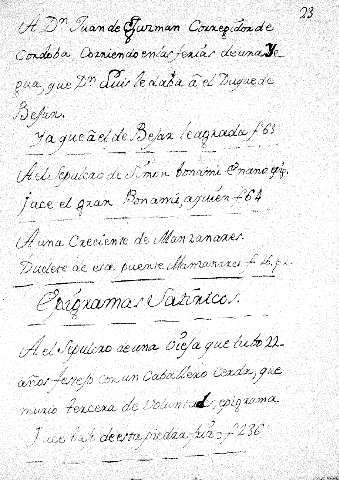 23
A Dn Juan de Guzman Corregidor de
Cordoba Corriendo en las ferias de una Ye-
gua, que Dn Luis le daba â el Duque de
Bejar.
Ya que â el de Bejar le agrada f 63
A el Sepulcro de Simon Bonami Enano
Jace el gran Bonami, a quien f 64
A una Creciente de Manzanares.
Duelete de esa puente Manzanares f
Epigramas Satiricos.
A el Sepulcro de una Vieja que tubo 22
años festejo con un Caballero Cerda, que
murio tercera de Voluntades, epigrama
Jace bajo de esta piedra fria f 236